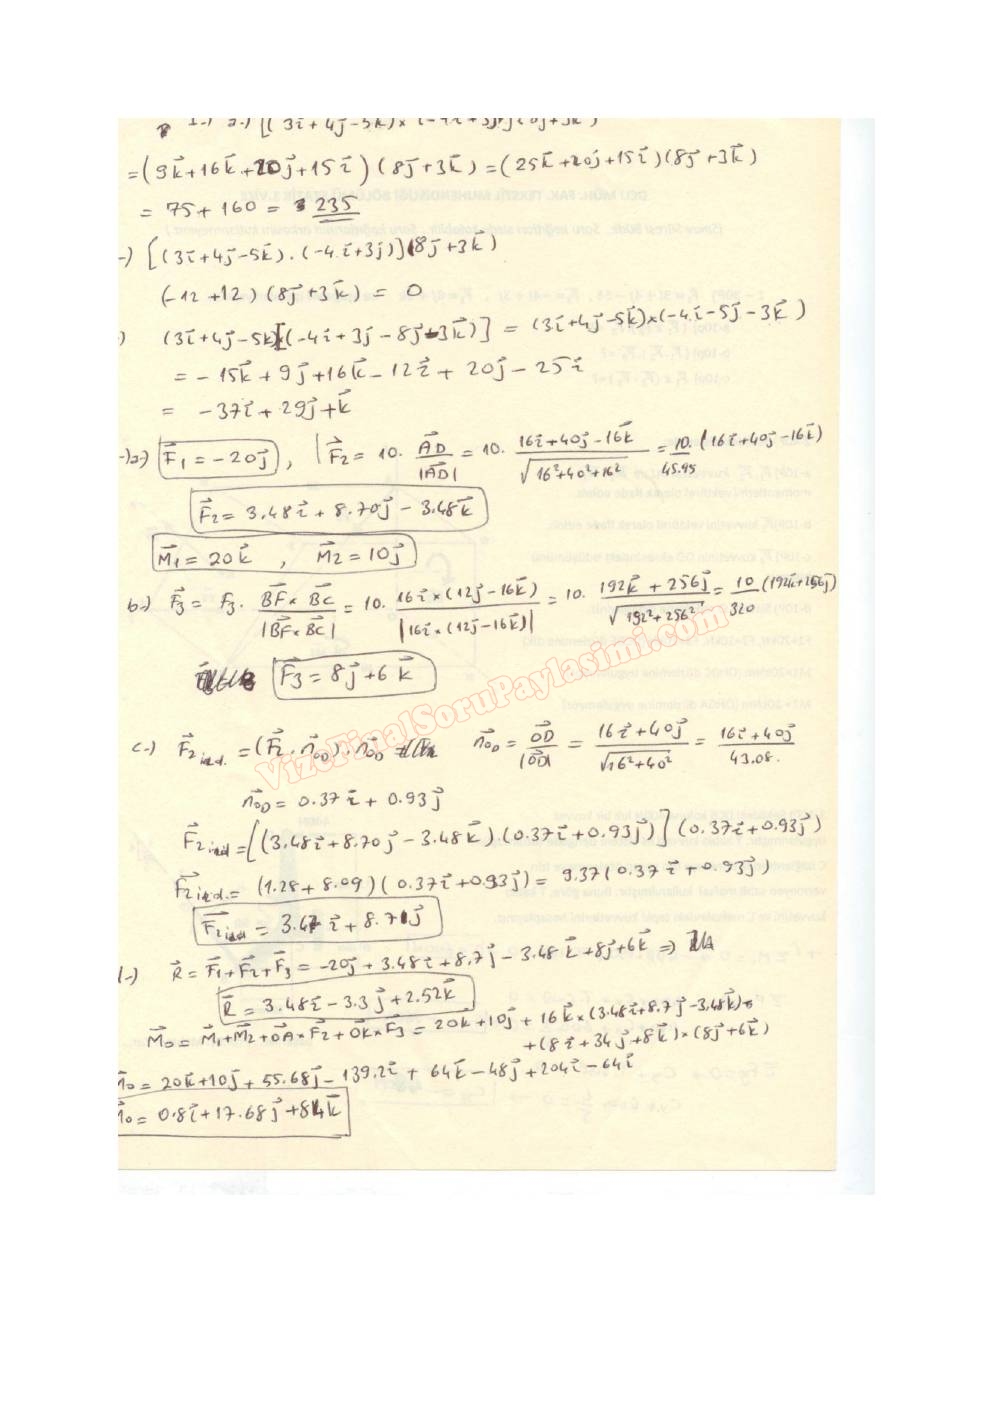 1-) a-) [(3i+4j-5k)×(-4i+3j)](8j+3k)
=(9k+16k+20j+15i)(8j+3k)=(25k+20j+15i)(8j+3k)
= 75+160 = 235
-) [(3i+4j-5k).(-4i+3j)](8j+3k)
(-12+12)(8j+3k) = 0
) (3i+4j-5k)×[(-4i+3j-8j-3k)] = (3i+4j-5k)×(-4i-5j-3k)
= -15k+9j+16k-12i+20j-25i
= -37i+29j+k
-)a-) F1=-20j, F2=10. AD/|AD| = 10. (16i+40j-16k)/√(16²+40²+16²) = 10/45.95 .(16i+40j-16k)
F2=3.48i+8.70j-3.48k
M1=20k , M2=10j
b-) F3= F3. (BF×BC)/|BF×BC| = 10. (16i×(12j-16k))/|16i×(12j-16k)| = 10. (192k+256j)/√(192²+256²) = 10/320 (192k+256j)
F3=8j+6k
c-) F2ind.=(F2.nOD).nOD nOD = OD/|OD| = (16i+40j)/√(16²+40²) = (16i+40j)/43.08.
nOD=0.37i+0.93j
F2ind=[(3.48i+8.70j-3.48k).(0.37i+0.93j)](0.37i+0.93j)
F2ind.=(1.28+8.09)(0.37i+0.93j)=9.37(0.37i+0.93j)
F2ind = 3.47i+8.71j
d-) R=F1+F2+F3=-20j+3.48i+8.7j-3.48k+8j+6k ⇒
R=3.48i-3.3j+2.52k
Mo=M1+M2+OA×F2+OK×F3=20k+10j+16k×(3.48i+8.7j-3.48k)+
+(8i+34j+8k)×(8j+6k)
Mo=20k+10j+55.68j-139.2i+64k-48j+204i-64i
Mo=0.8i+17.68j+84k
VizeFinalSoruPaylasimi.com